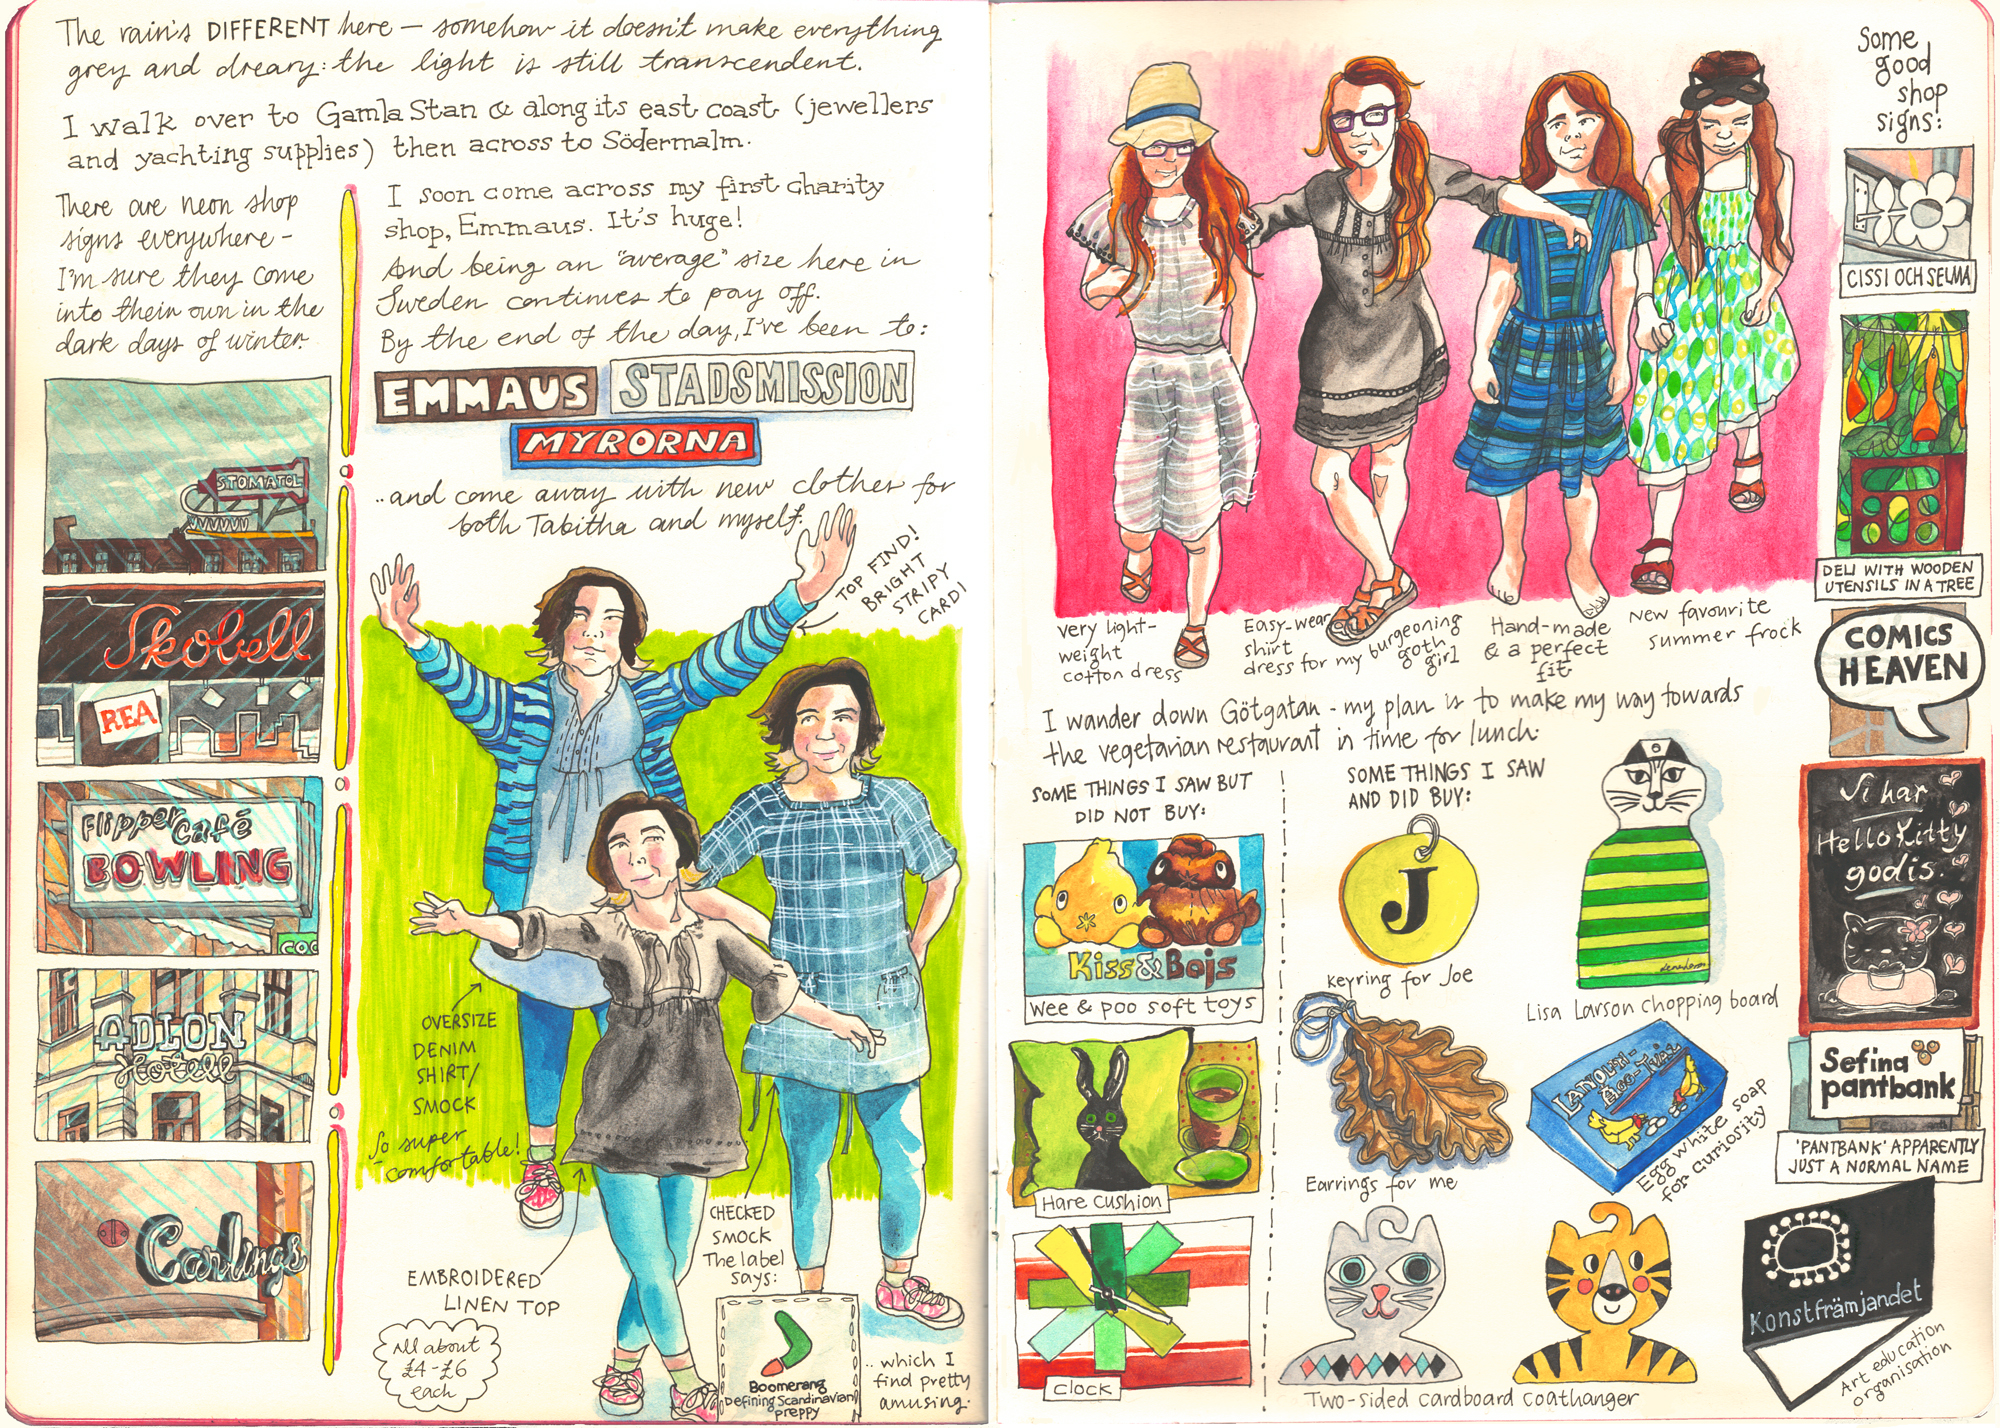 The rain's DIFFERENT here — somehow it doesn't make everything
grey and dreary: the light is still transcendent.
I walk over to Gamla Stan & along its east coast (jewellers
and yachting supplies) then across to Södermalm.
There are neon shop
signs everywhere -
I'm sure they come
into their own in the
dark days of winter.
STOMATOL
Skobell
REA
Flipper Café
BOWLING
COO
ADLON
Hotell
Carlings
I soon come across my first charity
shop, Emmaus. It's huge!
And being an "average" size here in
Sweden continues to pay off.
By the end of the day, I've been to:
EMMAUS
STADSMISSION
MYRORNA
..and come away with new clothes for
both Tabitha and myself.
TOP FIND!
BRIGHT
STRIPY
CARDI
OVERSIZE
DENIM
SHIRT/
SMOCK
So super
-comfortable!
EMBROIDERED
LINEN TOP
All about
£4-£6
each
CHECKED
SMOCK
The label
says:
Boomerang
Defining Scandinavian
preppy
.. which I
find pretty
amusing.
very light-
weight
cotton dress
Easy-wear
shirt
dress for my burgeoning
goth
girl
Hand-made
& a perfect
fit
New favourite
summer frock
I wander down Götgatan - my plan is to make my way towards
the vegetarian restaurant in time for lunch.
SOME THINGS I SAW BUT
DID NOT BUY:
Kiss & Bojs
Wee & poo soft toys
Hare cushion
Clock
SOME THINGS I SAW
AND DID BUY:
J
Keyring for Joe
Lisa Larson chopping board
Earrings for me
LANOLIN-
ÄGG-TVÅL
Egg white soap
for curiosity
Two-sided cardboard coathanger
Some
good
shop
signs:
CISSI OCH SELMA
DELI WITH WOODEN
UTENSILS IN A TREE
COMICS
HEAVEN
Vi har
Hello Kitty
godis.
Sefina
pantbank
'PANTBANK' APPARENTLY
JUST A NORMAL NAME
Konstfrämjandet
Art education
organisation